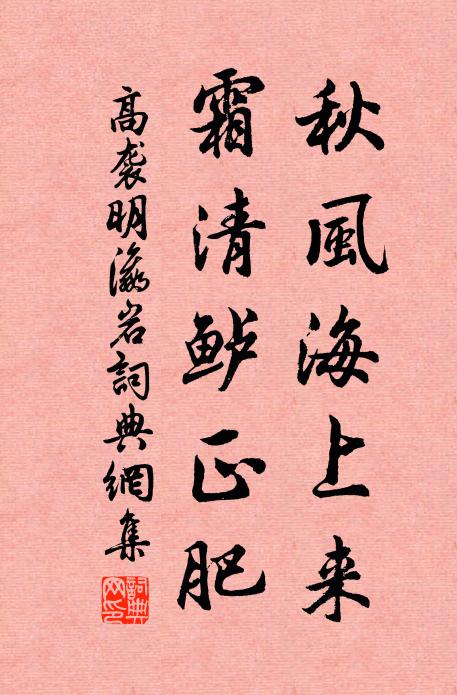 秋風海上来
霜清鲈正肥
高袭明瀛岩詞典網集
詞典網印